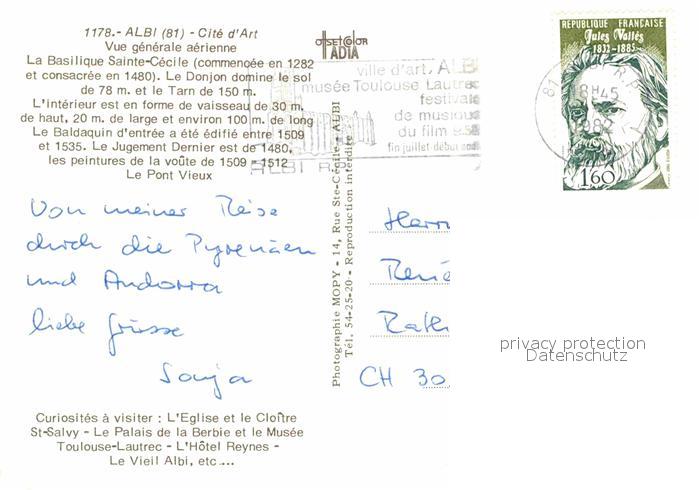 1178.- ALBI (81) - Cité d'Art
Vue générale aérienne
La Basilique Sainte-Cécile (commencée en 1282
et consacrée en 1480). Le Donjon domine le sol
de 78 m. et le Tarn de 150 m.
L'intérieur est en forme de vaisseau de 30 m.
de haut, 20 m. de large et environ 100 m. de long
Le Baldaquin d'entrée a été édifié entre 1509
et 1535. Le Jugement Dernier est de 1480,
les peintures de la voûte de 1509 - 1512
Le Pont Vieux
offset color
IADIA
ville d'art. ALBI
musée Toulouse Lautrec
festivals
de musique
du film
fin juillet début
ALBI
RÉPUBLIQUE FRANÇAISE
Jules Vallès
1832-1885
1,60
81
18H45
1982
Von meiner Reise
durch die Pyrenäen
und Andorra
liebe Grüsse
Sonja
Photographie MOPY - 14, Rue Ste-Cécile - ALBI
Tél. 54-25-20 - Reproduction interdite
Herrn
René
Rath
CH 30
privacy protection
Datenschutz
Curiosités à visiter : L'Eglise et le Cloître
St-Salvy - Le Palais de la Berbie et le Musée
Toulouse-Lautrec - L'Hôtel Reynes -
Le Vieil Albi, etc....